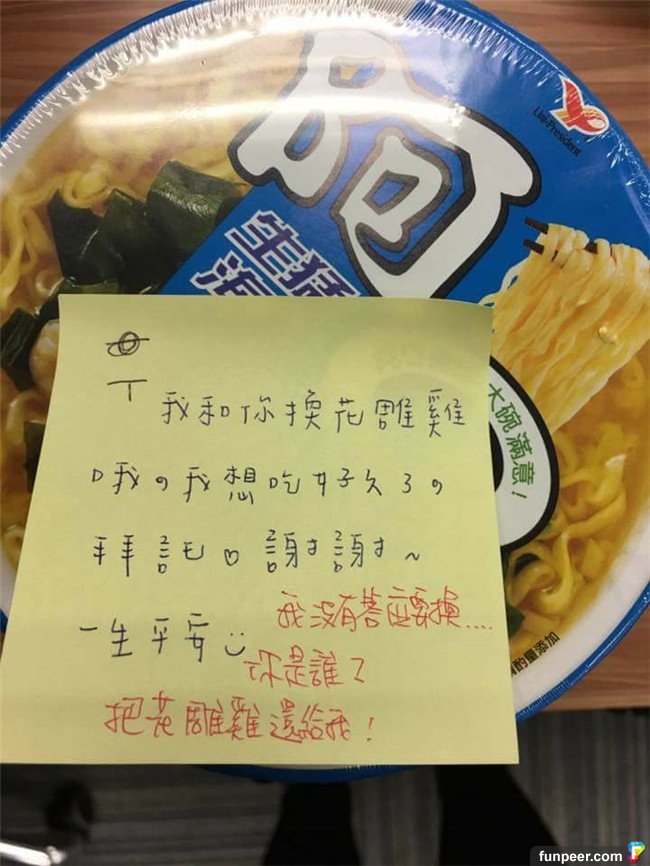 阿
Uni-President
生猛
海
大碗滿意！
我和你換花雕雞
哦。我想吃好久了。
拜託♡謝謝~
一生平安
我沒有答應要換....
你是誰？
把花雕雞還給我！
酌量添加
funpeer.com